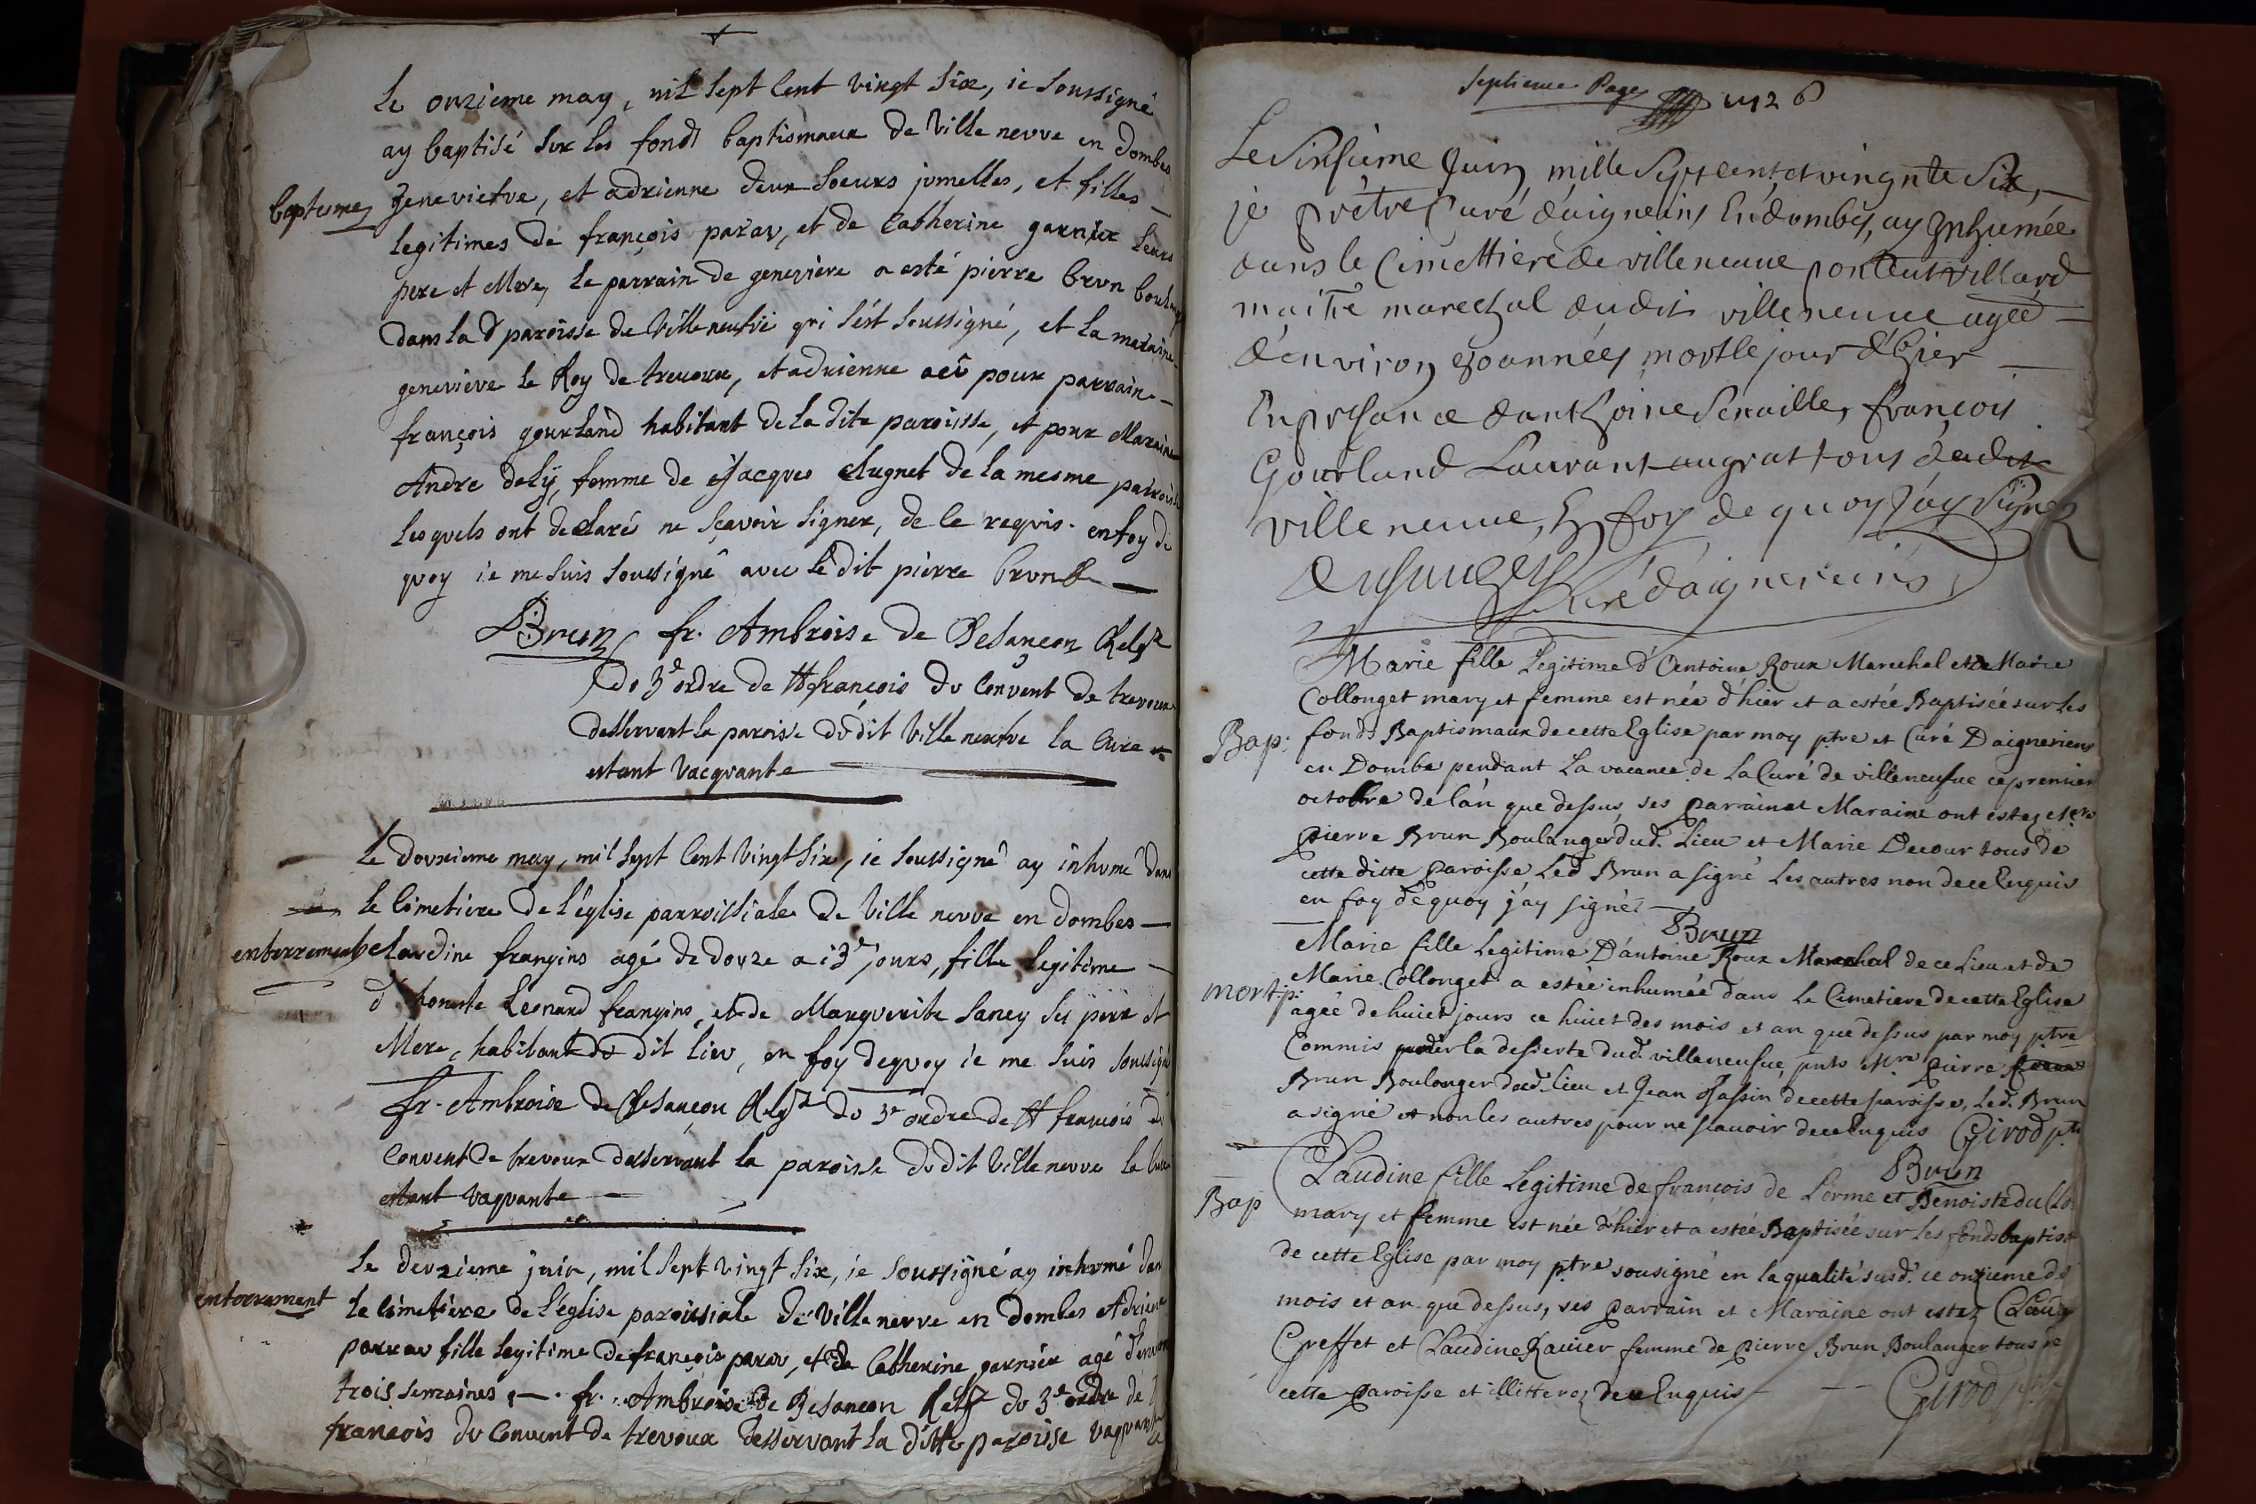 Le onzieme may, mil sept Cent vingt six, ie soussigné
ay baptisé sur les fonds baptismaux de Ville nevve en dombes
baptemes Genevietve, et adrienne deux soeurs jumelles, et filles
legitimes de françois parav, et de Catherine garnier leurs
pere et Mere, le parrain de genevieve a esté pierre brvn boulanger
dans la d paroisse de Ville neufve qvi s'est soussigné, et la maraine
genevieve le Roy de trevoux, et adrienne a eû pour parrain
françois gourland habitant de la dite paroisse, et pour Maraine
Andre dely, femme de Jacques Clugnet de la mesme paroisse
lesquels ont declaré ne sçavoir signer, de ce requis. en foy de
qvoy ie me suis soussigné avec le dit pierre brvn
Brun fr. Ambroise de Besançon Relgx
du 3e ordre de St françois dv Convent de trevoux
desservant la paroisse dv dit Ville neufve la Cure
estant vacqvante
Le dovzieme may, mil sept Cent vingt six, ie soussigné ay inhvmé dans
le Cimetiere de l'église parroissiale de Ville nevve en dombes
enterrement Clavdine françins agé de dovze a 13 jours, fille legitime
d'honnete Leonard françins, et de Marguerite Sancy ses pere et
Mere, habitant dv dit liev, en foy de qvoy ie me suis soussigné
fr. Ambroise de Besançon Relgx dv 3e ordre de St françois dv
Convent de trevoux desservant la paroisse dv dit Ville nevve la Cure
estant vaqvante
Le devzieme jvin, mil sept vingt six, ie soussigné ay inhvmé dans
enterrement le Cimetiere de l'église paroissiale de Ville nevve en dombes Adrienne
parrav fille legitime de françois parav, et de Catherine garnier agé d'environ
trois semaines. fr. Ambroise de Besancon Relgx dv 3e ordre de
françois dv Convent de trevoux desservant la ditte paroisse vaqvante
Septieme Page 1726
Le Sixsieme Juin mille Sept cent et vingnte Six,
je prêtre Curé daigneins En dombes, ay Inhumée
dans le Cimettiere de villeneuue villard
maitre marechal dudit villeneuue agéé
d'environ années mort le jour d'hier
En presance danthoine Senaille, françois
Gourland Laurant augrat tous dudit
villeneuue, En foy de quoy J'ay Signe
Curé daignereins
Marie fille Legitime d'Antoine Roux Marechal et de Marie
Collonget mary et femme est née d'hier et a estée Baptisée sur Les
Bap: fonds Baptismaux de cette Eglise par moy ptre et Curé Daignereins
en Dombe pendant La vacance de La Curé de villeneufue ce premier
octobre de l'an que dessus, ses parrain et Maraine ont estez
pierre Brun Boulanger dud. Lieu et Marie Decour tous de
cette ditte paroisse, Led Brun a signé Les autres non de ce Enquis
en foy de quoy j'ay signé
Brun
Marie fille Legitime D'antoine Roux Marechal de ce Lieu et de
Marie Collonget a estée inhumée dans Le Cimetiere de cette Eglise
mort. agée de huict jours ce huict des mois et an que dessus par moy ptre
Commis pour la desserte dud. villeneufue, pnts Mre pierre
Brun Boulanger dud. Lieu et Jean Passin de cette paroisse, Led. Brun
a signé et non les autres pour ne sçauoir de ce Enquis Girod ptre
Brun
Claudine fille Legitime de françois de Lorme et Benoiste du Clo
Bap mary et femme est née d'hier et a estée Baptisée sur Les fonds baptism
de cette Eglise par moy ptre sousigné en la qualité susd. ce onzieme de
mois et an que dessus, ses parrain et Maraine ont estez Claude
Greffet et Claudine Rauier femme de pierre Brun Boulanger tous de
cette paroisse et illitterez de ce Enquis Girod ptre